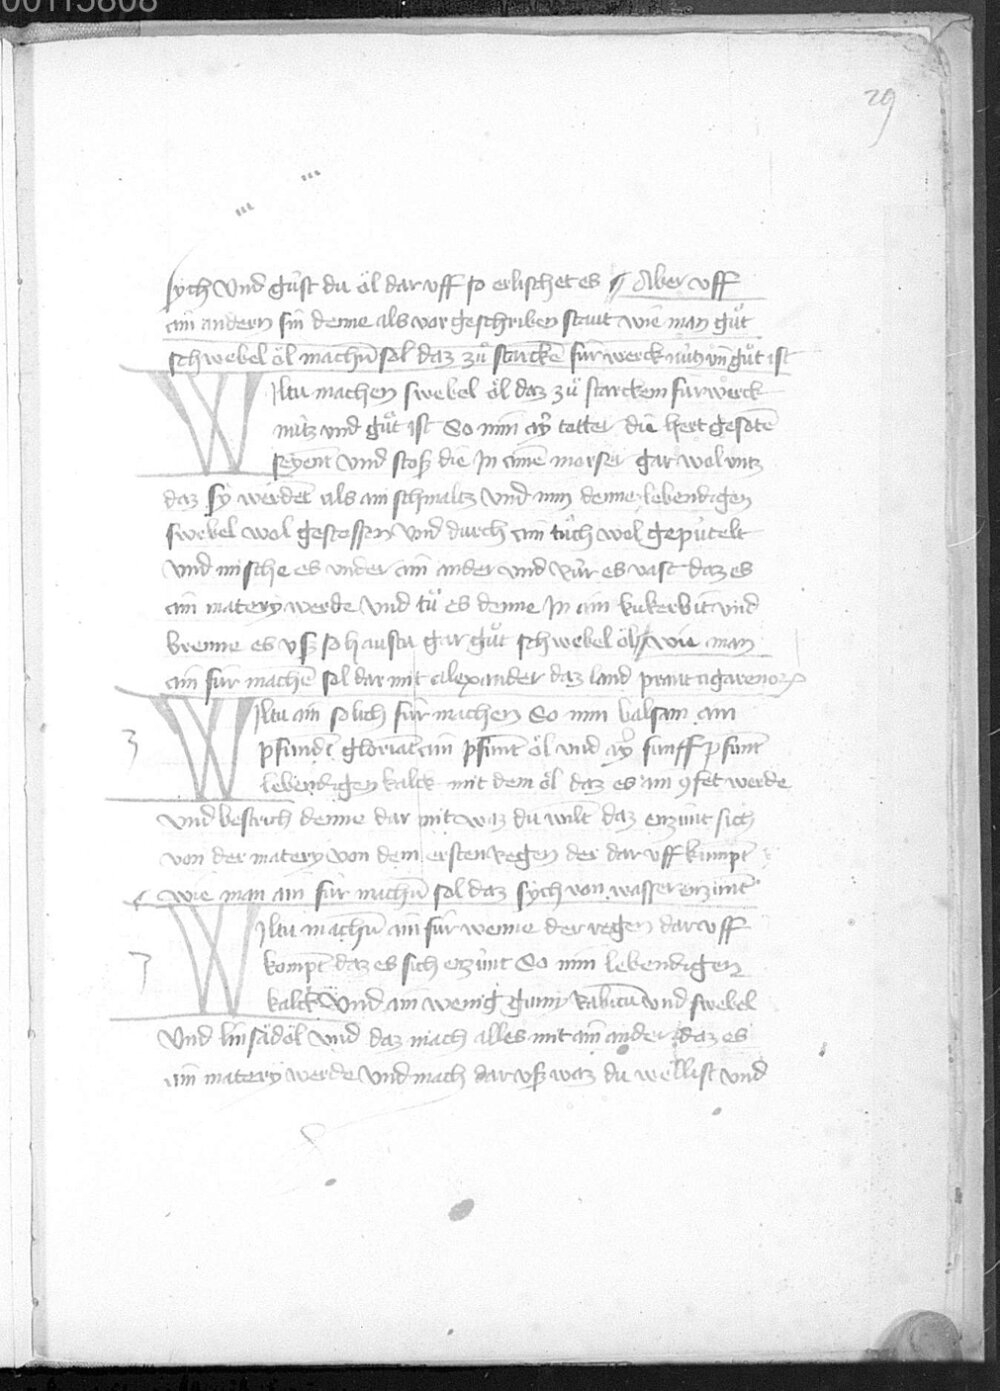 00115808
29
sych vnd gust du öl dar vff so erlischet es Aber vff
ain andern sin denne als vor geschriben staut wie man gůt
schwebel öl machen̄ sol daz zů starcken̄ fúr werck nútz vn̄ gůt ist
Wiltu machen swebel öl daz zů starckem fúrwerck
nútz vnd gůt ist So nim ay̋ totter die hert gesoten̄
seyent vnd stoß die Jn ainē morser gar wol vntz
daz sy werdent als ain schmaltz vnd nim denne lebendigen
swebel wol gestossen vnd durch ain tůch wol gepútelt
vnd mische es vnder ain ander vnd rúr es vast daz es
ain matery werde vnd tů es denne Jn ain kukerbit vnd
brenne es vß so haustu gar gůt schwebel öl wie man
ain fúr machē sol dar mit alexander daz land prant agarenorꝝ
Wiltu ain solich fúr machen So nim balsam ain
pfund gloriat ain pfunt öl vnd ay̋ funff pfunt
lebendigen kalck mit dem öl daz es ain 9fet werde
vnd bestrich denne dar mit waz du wilt daz enzúnt sich
von der matery von dem ersten regen der dar vff kumpt
wie man ain fúr machen̄ sol daz sych von wasser enzúnt
3
Wiltu machen̄ ain fúr wenne der regen dar vff
kompt daz es sich enzúnt So nim lebendigen
kalck vnd ain wenig gumy rabicū vnd swebel
vnd linsad öl vnd daz mach alles mit ain ander daz es
ain matery werde vnd mach dar vß waz du wellist vnd